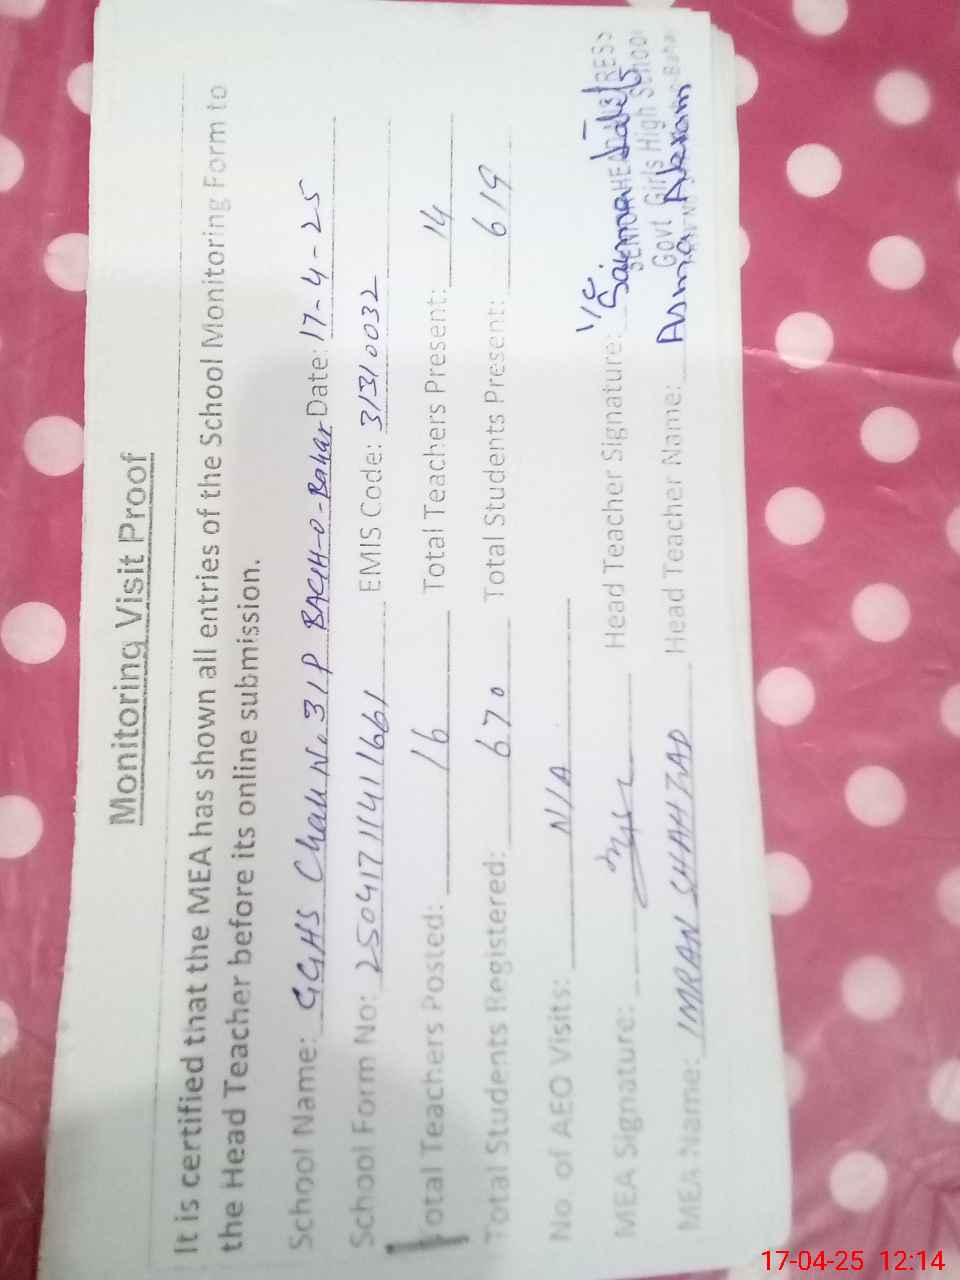 Monitoring Visit Proof
It is certified that the MEA has shown all entries of the School Monitoring Form to
the Head Teacher before its online submission.
School Name: GGHS Chak No 31P BAGH-O-Bahar Date: 17-4-25
School Form No: 250417114111661 EMIS Code: 31310032
Total Teachers Posted: 16 Total Teachers Present: 14
Total Students Registered: 670 Total Students Present: 619
No. of AEO Visits: N/A
MEA Signature: Head Teacher Signature: I/C. Saima
SENIOR HEADMISTRESS
Govt Girls High School
MEA Name: IMRAN SHAHZAD Head Teacher Name: Asma Akram
17-04-25 12:14